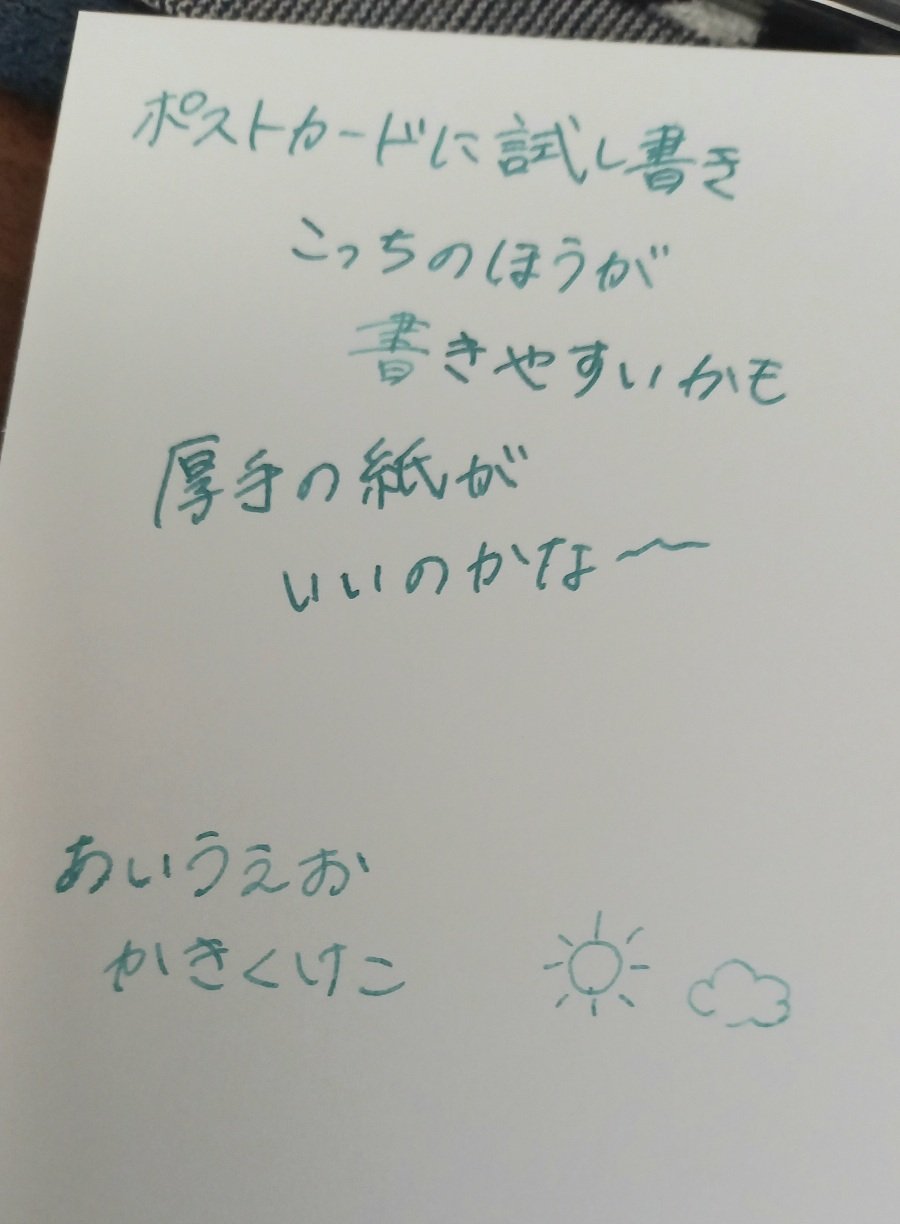 ポストカードに試し書き
こっちのほうが
書きやすいかも
厚手の紙が
いいのかな〜
あいうえお
かきくけこ